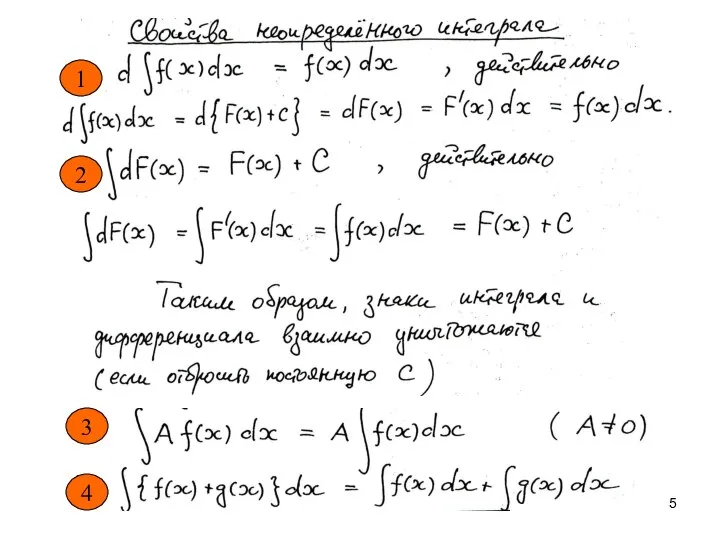 Свойства неопределённого интеграла
1 d∫f(x)dx = f(x)dx , действительно
d∫f(x)dx = d{F(x)+C} = dF(x) = F'(x)dx = f(x)dx.
2 ∫dF(x) = F(x) + C , действительно
∫dF(x) = ∫F'(x)dx = ∫f(x)dx = F(x) + C
Таким образом, знаки интеграла и
дифференциала взаимно уничтожаются
(если отбросить постоянную C)
3 ∫A f(x) dx = A ∫f(x)dx ( A≠0)
4 ∫{f(x)+g(x)}dx = ∫f(x)dx + ∫g(x)dx
5